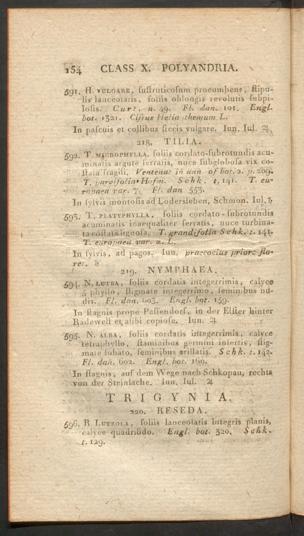 154 CLASS X. POLYANDRIA.
591. H. VULGARE, suffruticosum procumbens, stipu-
lis lanceolatis, foliis oblongis revolutis subpi-
losis. Curt. n. 49. Fl. dan. 101. Engl.
bot. 1321. Cistus Helianthemum L.
In pascuis et collibus siccis vulgare. Iun. Iul. ♃
218. TILIA.
592. T. MICROPHYLLA, foliis cordato-subrotundis acu-
minatis argute serratis, nuce subglobosa vix co-
stata fragili. Ventenat in ann of bot. 2. p. 209.
T. parvifolia Hofm. Schk. t. 141. T. eu-
ropaea var. γ. Fl. dan. 553.
In sylvis montosis ad Lodersleben, Schmon. Iul. ♄
593. T. PLATYPHYLLA, foliis cordato-subrotundis
acuminatis inaequaliter serratis, nuce turbina-
ta costata lignosa. T. grandifolia Schk. t. 141.
T. europaea var. α. L.
In sylvis, ad pagos. Iun. praecocius priore flo-
ret.
219. NYMPHAEA.
594. N. LUTEA, foliis cordatis integerrimis, calyce
5 phyllo, stigmate integerrimo, seminibus nu-
dis. Fl. dan. 603. Engl. bot. 159.
In stagnis prope Passendorf, in der Elster hinter
Radewell et alibi copiose. Iun. ♃
595. N. ALBA, foliis cordatis integerrimis, calyce
tetraphyllo, staminibus germini insertis, stig-
mate lobato, seminibus arillatis. Schk. t. 142.
Fl. dan. 602. Engl. bot. 160.
In stagnis, auf dem Wege nach Schkopau, rechts
von der Steinlache. Iun. Iul. ♃
TRIGYNIA.
220. RESEDA.
596. R. LUTEOLA, foliis lanceolatis integris planis,
calyce quadrifido. Engl. bot. 320. Schk.
t. 129.